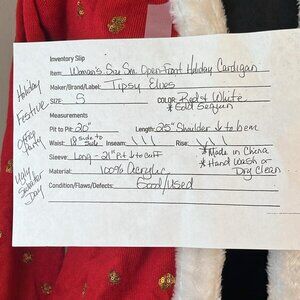 Inventory Slip
Item: Woman's Sz Sm Open-Front Holiday Cardigan
Maker/Brand/Label: Tipsy Elves
SIZE: S COLOR: Red & White
* Gold Sequin
Measurements
Pit to Pit: 20" Length: 25" Shoulder to hem
Waist: 18" side to side Inseam: \ \ \ Rise: \ \ \
Sleeve: Long - 21" Pit to cuff * Made in China
Material: 100% Acrylic * Hand Wash or Dry Clean
Condition/Flaws/Defects: Good/Used
Holiday
Festive
Office Party
Ugly Sweater Day